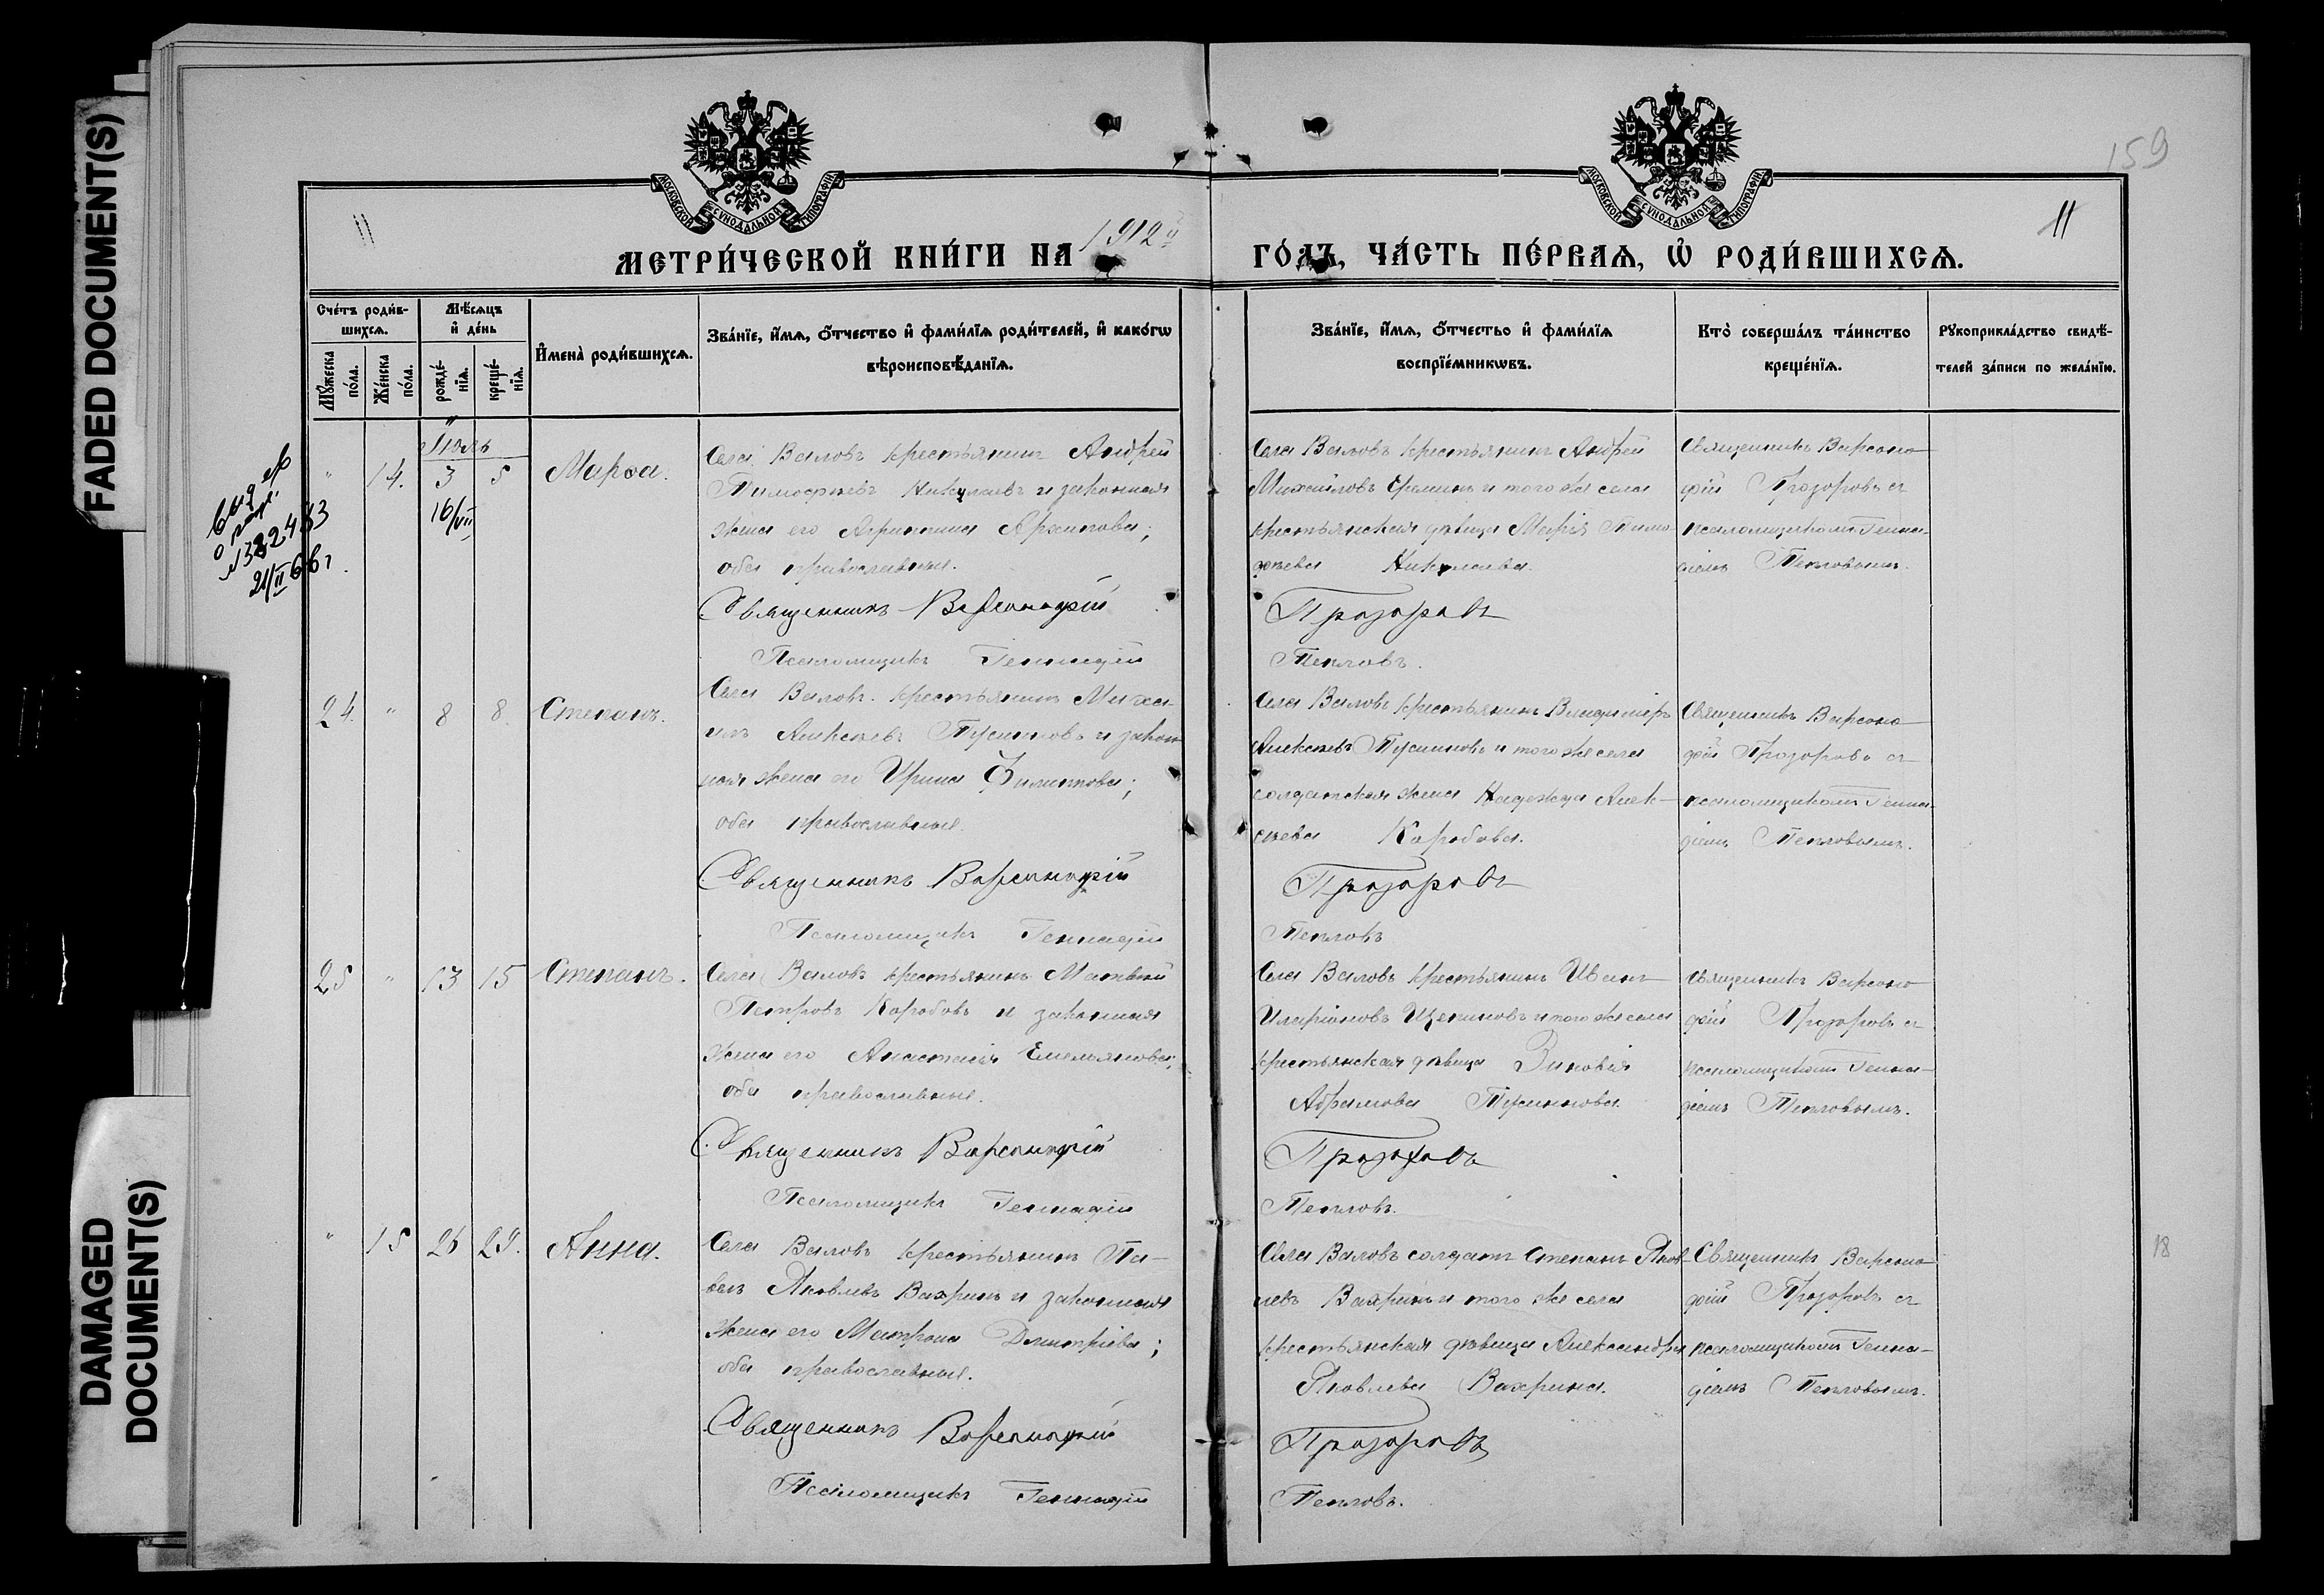 FADED DOCUMENT(S)
DAMAGED
DOCUMENT(S)
159
11
11
МОСКОВСКОЙ СѴНОДАЛЬНОЙ ТИПОГРАФІИ
МОСКОВСКОЙ СѴНОДАЛЬНОЙ ТИПОГРАФІИ
МЕТРИ́ЧЕСКОЙ КНИ́ГИ НА 1912й
ГО́ДЪ, ЧА́СТЬ ПЕ́РВАѦ, Ѡ РОДИ́ВШИХСѦ.
Сче́тъ роди́в-
шихсѧ.
Мꙋ́жеска
по́ла.
Же́нска
по́ла.
Мѣ́сѧцъ
и҆ де́нь
рожде́-
нїѧ.
креще́-
нїѧ.
И҆мена̀ роди́вшихсѧ.
Зва́нїе, и҆́мѧ, ѻ҆́тчество и҆ фами́лїѧ роди́телей, и҆ како́гѡ
вѣроисповѣ́данїѧ.
Зва́нїе, и҆́мѧ, ѻ҆́тчество и҆ фами́лїѧ
воспрїе́мникѡвъ.
Кто̀ соверша́лъ та́инство
креще́нїѧ.
Рꙋкоприкла́дство свидѣ́-
телей за́писи по жела́нїю.
выд
21/II 66 г
Іюль
" 14. 3 5 Марѳа.
16/VII
Села Валовъ крестьянинъ Андрей
Тимофѣевъ Николаевъ и законная
жена его Агрипина Архипова;
оба православные.
Священникъ Варсонофій
Псаломщикъ Геннадій
Села Валовъ крестьянинъ Андрей
Михайловъ Ереминъ и того же села
крестьянская дѣвица Марія Тимо
фѣева Николаева.
Прозоровъ
Тепловъ.
Священникъ Варсоно
фій Прозоровъ съ
псаломщикомъ Генна-
діемъ Тепловымъ.
24. " 8 8. Степанъ.
Села Валовъ крестьянинъ Миха-
илъ Алексѣевъ Пусинковъ и закон
ная жена его Ирина Филиппова;
оба православные.
Священникъ Варсонофій
Псаломщикъ Геннадій
Села Валовъ крестьянинъ Владиміръ
Алексѣевъ Пусинковъ и того же села
солдатская жена Надежда Алек-
сѣева Коробова.
Прозоровъ
Тепловъ
Священникъ Варсоно
фій Прозоровъ съ
псаломщикомъ Генна-
діемъ Тепловымъ.
25 " 13 15 Степанъ.
Села Валовъ крестьянинъ Матвѣй
Петровъ Коробовъ и законная
жена его Анастасія Емельянова;
оба православные.
Священникъ Варсонофій
Псаломщикъ Геннадій
Села Валовъ крестьянинъ Иванъ
Иларіоновъ Щепиновъ и того же села
крестьянская дѣвица Зиновія
Абрамова Пусинкова.
Прозоровъ
Тепловъ.
Священникъ Варсоно
фій Прозоровъ съ
псаломщикомъ Генна-
діемъ Тепловымъ.
" 15 26 29. Анна.
Села Валовъ крестьянинъ Па-
велъ Яковлевъ Вахринъ и законная
жена его Матрона Дмитріева;
оба православные.
Священникъ Варсонофій
Псаломщикъ Геннадій
Села Валовъ солдатъ Степанъ Яков-
левъ Вахринъ и того же села
крестьянская дѣвица Александра
Яковлева Вахрина.
Прозоровъ
Тепловъ.
Священникъ Варсоно
фій Прозоровъ съ
псаломщикомъ Генна-
діемъ Тепловымъ.
18